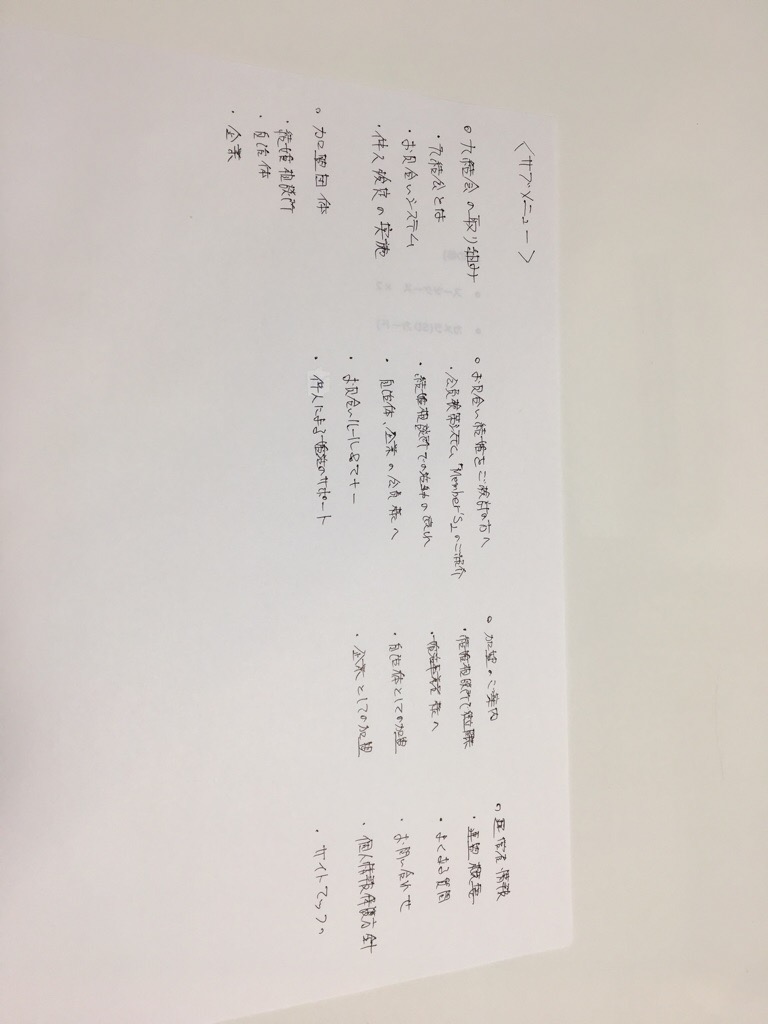 <サブメニュー>
○ 九結会の取り組み
・九結会とは
・お見合いシステム
・仲人検定の実施
○ 加盟団体
・結婚相談所
・自治体
・企業
○ お見合い結婚をご検討の方へ
・会員検索システム「Member's」のご紹介
・結婚相談所での活動の流れ
・自治体、企業の会員様へ
・お見合いルール&マナー
・仲人による婚活のサポート
○ 加盟のご案内
・結婚相談所で開業
・婚活事業者様へ
・自治体としての加盟
・企業としての加盟
○ 運営者情報
・連盟概要
・よくある質問
・お問い合わせ
・個人情報保護方針
・サイトマップ